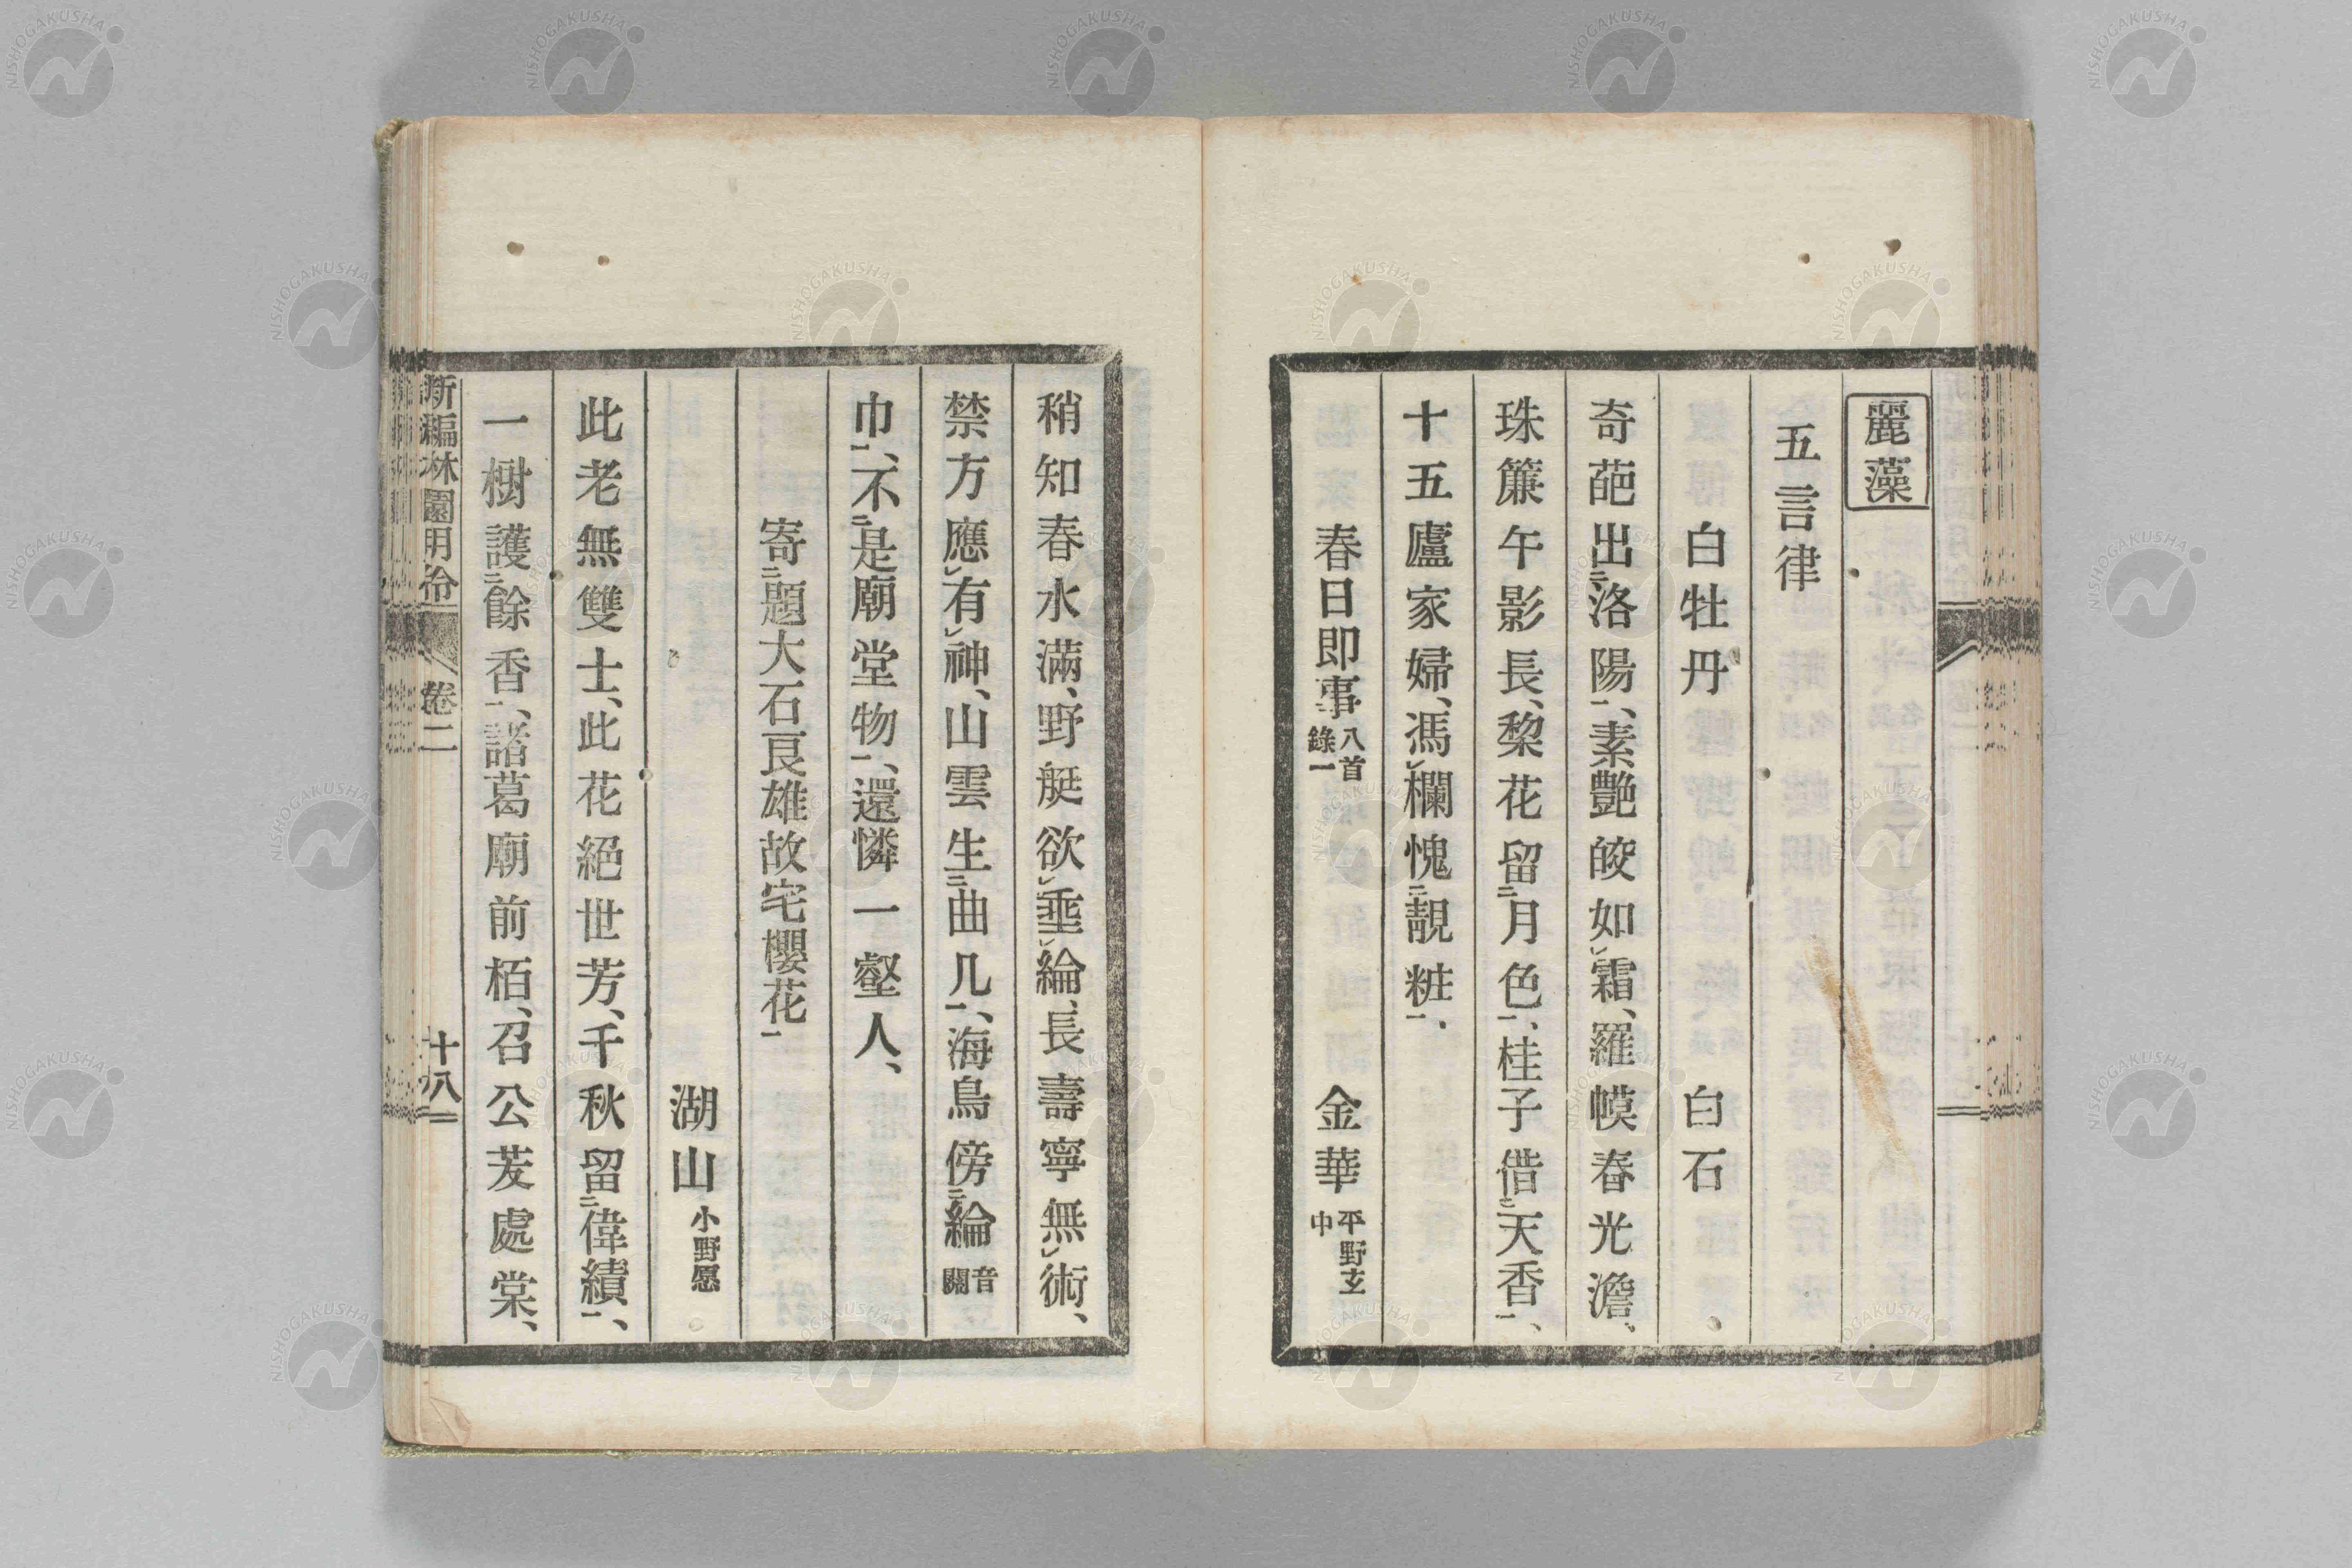 麗藻
五言律
白牡丹　白石
奇葩出㆓洛陽㆒、素艶皎如㆑霜、羅幙春光澹、
珠簾午影長、棃花留㆓月色㆒、桂子借㆓天香㆒、
十五盧家婦、馮㆑欄愧㆓靚粧㆒、
春日即事 八首錄一　金華 平野玄中
稍知春水滿、野艇欲㆑垂㆑綸、長壽寧無㆑術、
禁方應㆑有㆑神、山雲生㆓曲几㆒、海鳥傍㆓綸 音關
巾㆒、不㆓是廟堂物㆒、還憐一壑人、
寄㆓題大石良雄故宅櫻花㆒
湖山 小野愿
此老無雙士、此花絕世芳、千秋留㆓偉績㆒、
一樹護㆓餘香㆒、諸葛廟前栢、召公茇處棠、
新編林園月令 卷二 十八
NISHOGAKUSHA